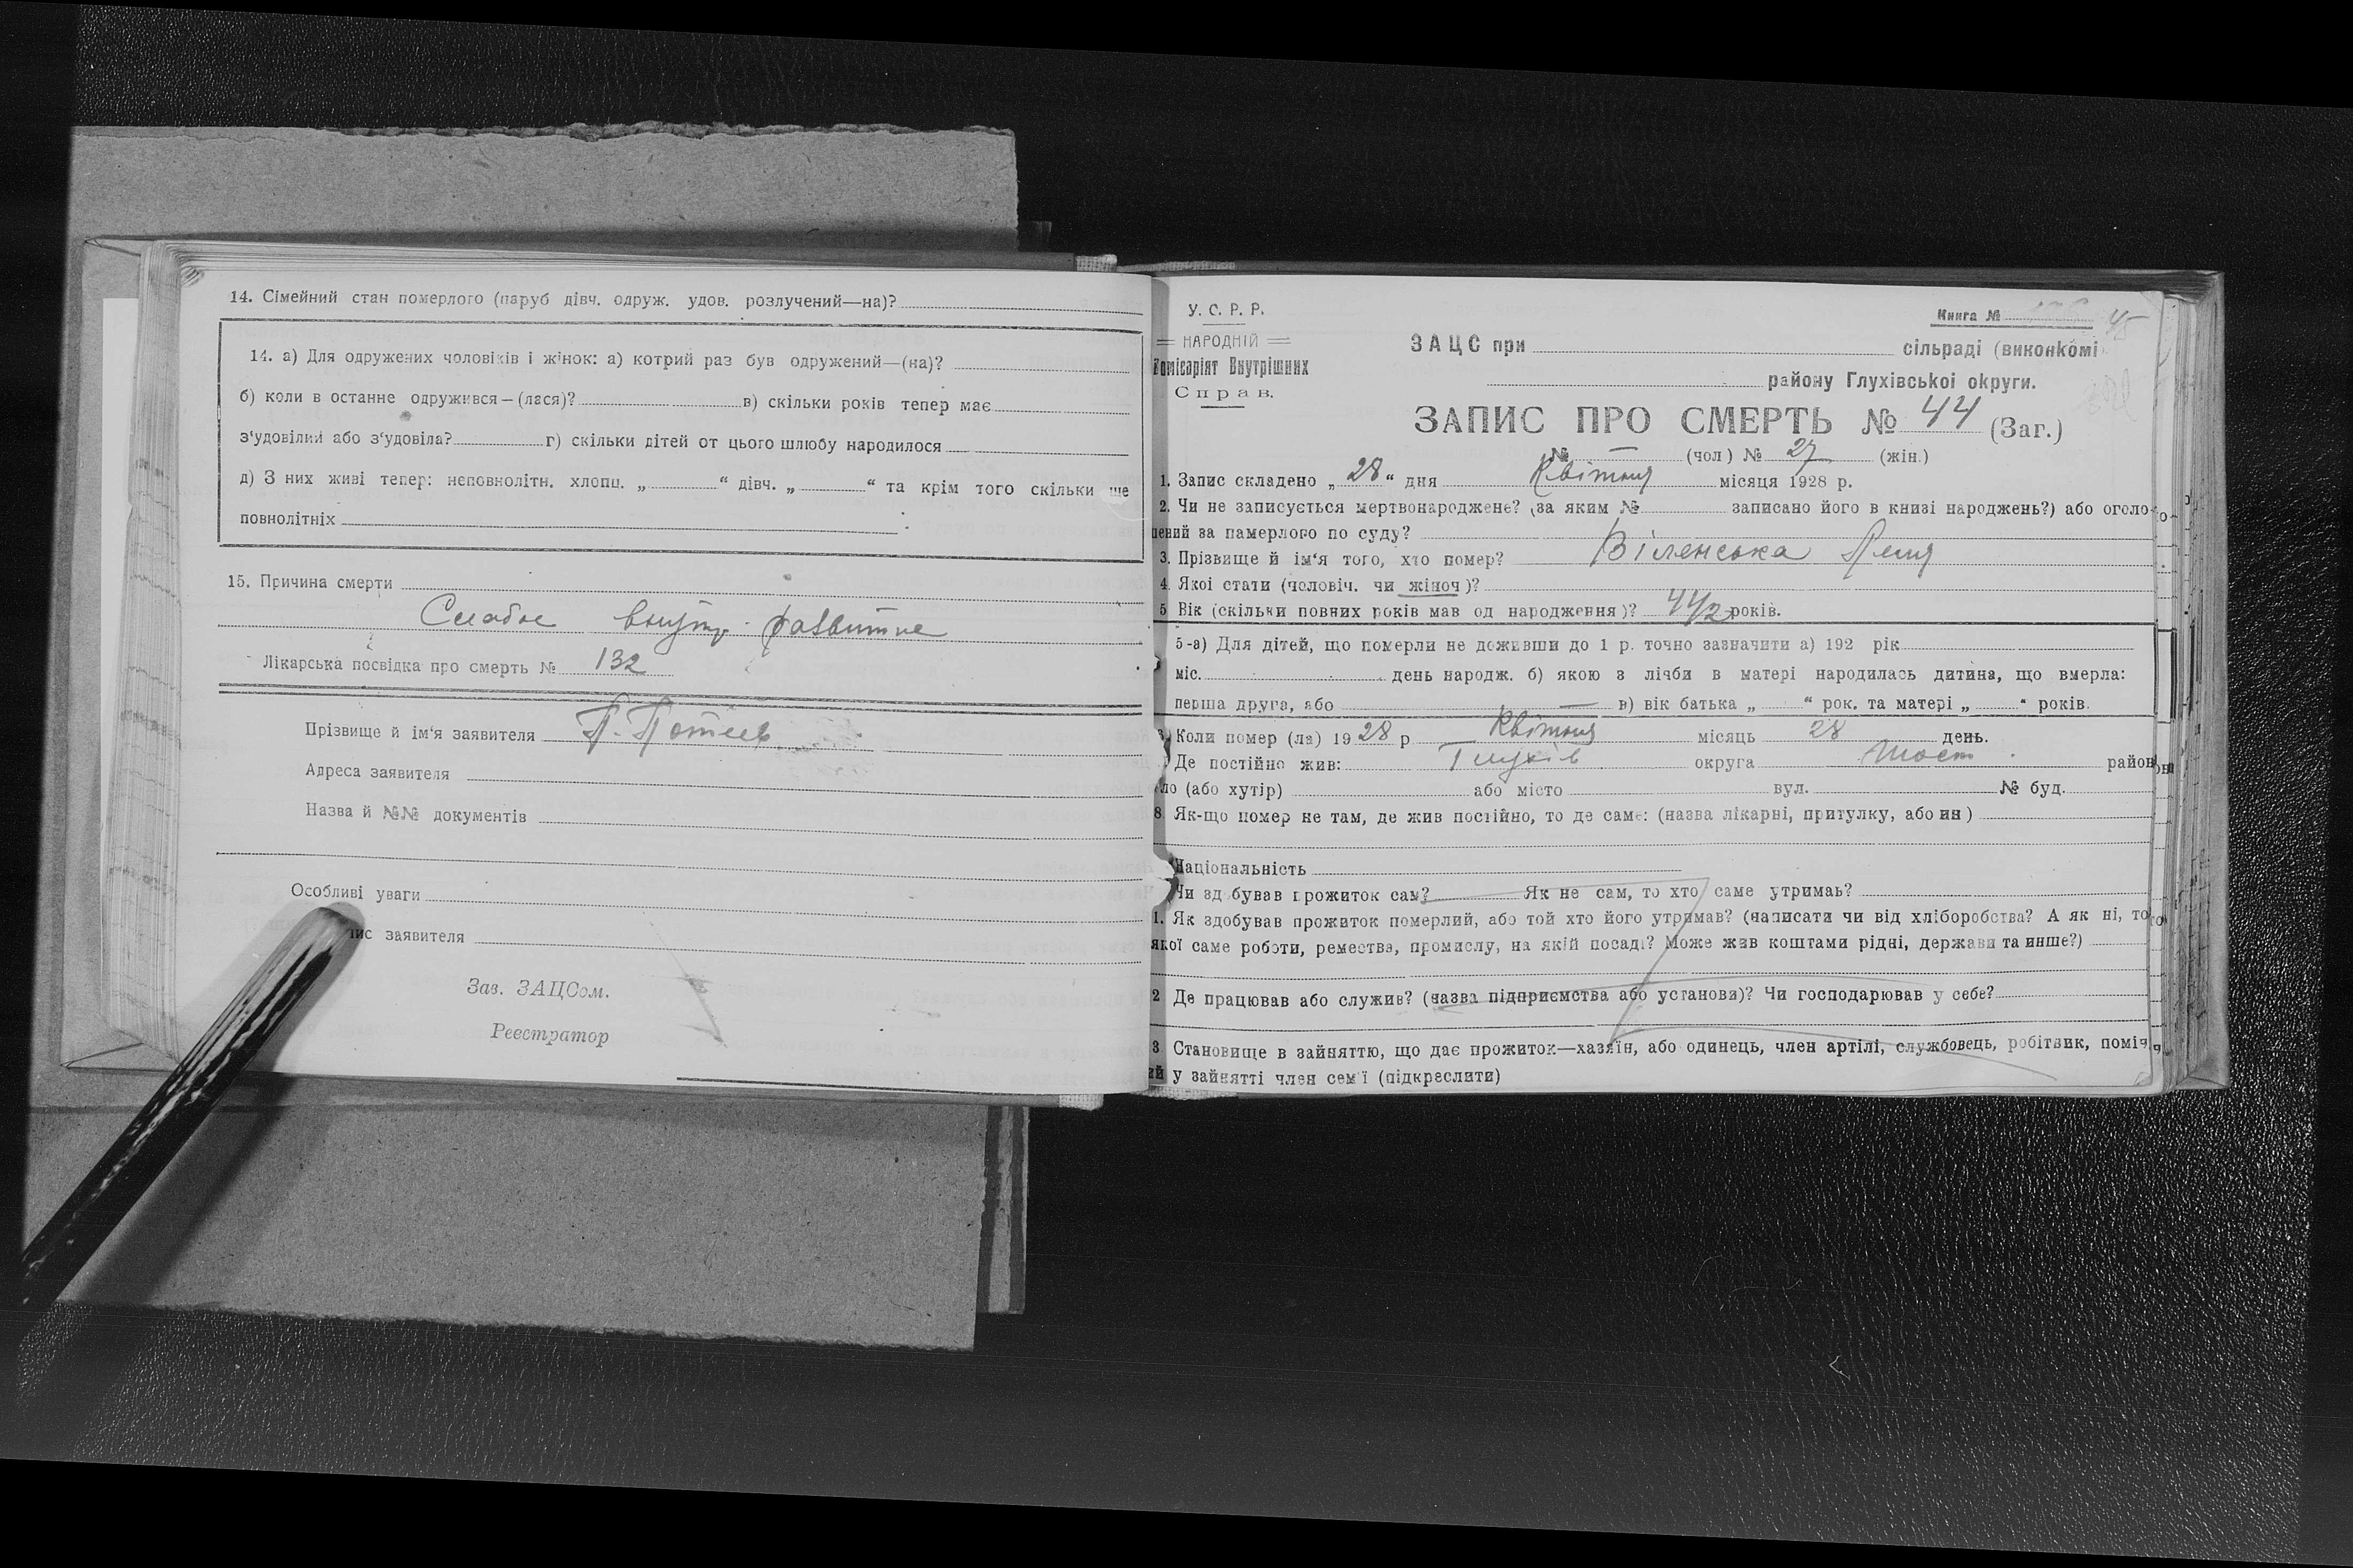 14. Сімейний стан померлого (паруб дівч. одруж. удов. розлучений—на)?
14. а) Для одружених чоловіків і жінок: а) котрий раз був одружений—(на)?
б) коли в останне одружився—(лася)? в) скільки років тепер має
з‘удовілий або з‘удовіла? г) скільки дітей от цього шлюбу народилося
д) З них живі тепер: неповнолітн. хлопц. „ “ дівч. „ “ та крім того скільки ще
повнолітніх
15. Причина смерти
Слабое внутр. развитие
Лікарська посвідка про смерть № 132
Прізвище й ім‘я заявителя П.
Адреса заявителя
Назва й №№ документів
Особливі уваги
пис заявителя
Зав. ЗАЦСом.
Реєстратор
У. С. Р. Р.
НАРОДНІЙ
Комісаріят Внутрішних
Справ.
Книга № 45
ЗАЦС при сільраді (виконкомі)
району Глухівської округи.
ЗАПИС ПРО СМЕРТЬ № 44 (Заг.)
№ — (чол) № 27 (жін.)
1. Запис складено „28“ дня Квітня місяця 1928 р.
2. Чи не записується мертвонароджене? (за яким № записано його в книзі народжень?) або оголо-
шений за памерлого по суду?
3. Прізвище й ім‘я того, хто помер? Віленська
4. Якої стати (чоловіч. чи жіноч)?
5. Вік (скільки повних років мав од народження)? років.
5-а) Для дітей, що померли не доживши до 1 р. точно зазначити а) 192 рік
міс. день народж. б) якою з лічби в матері народилась дитина, що вмерла:
перша друга, або — в) вік батька „ “ рок. та матері „ “ років.
Коли помер (ла) 1928 р Квітня місяць 28 день.
Де постійно жив: Глухів округа Шост. район
ло (або хутір) або місто вул. № буд.
8. Як-що помер не там, де жив постійно, то де саме: (назва лікарні, притулку, або ин)
Національність
Чи здобував прожиток сам? Як не сам, то хто саме утримав?
1. Як здобував прожиток померлий, або той хто його утримав? (написати чи від хліборобства? А як ні, то
якої саме роботи, ремества, промислу, на якій посаді? Може жив коштами рідні, держави та инше?)
2 Де працював або служив? (назва підприємства або установи)? Чи господарював у себе?
3 Становище в зайняттю, що дає прожиток—хазяїн, або одинець, член артілі, службовець, робітник, поміч
ий у зайнятті член сем‘ї (підкреслити)